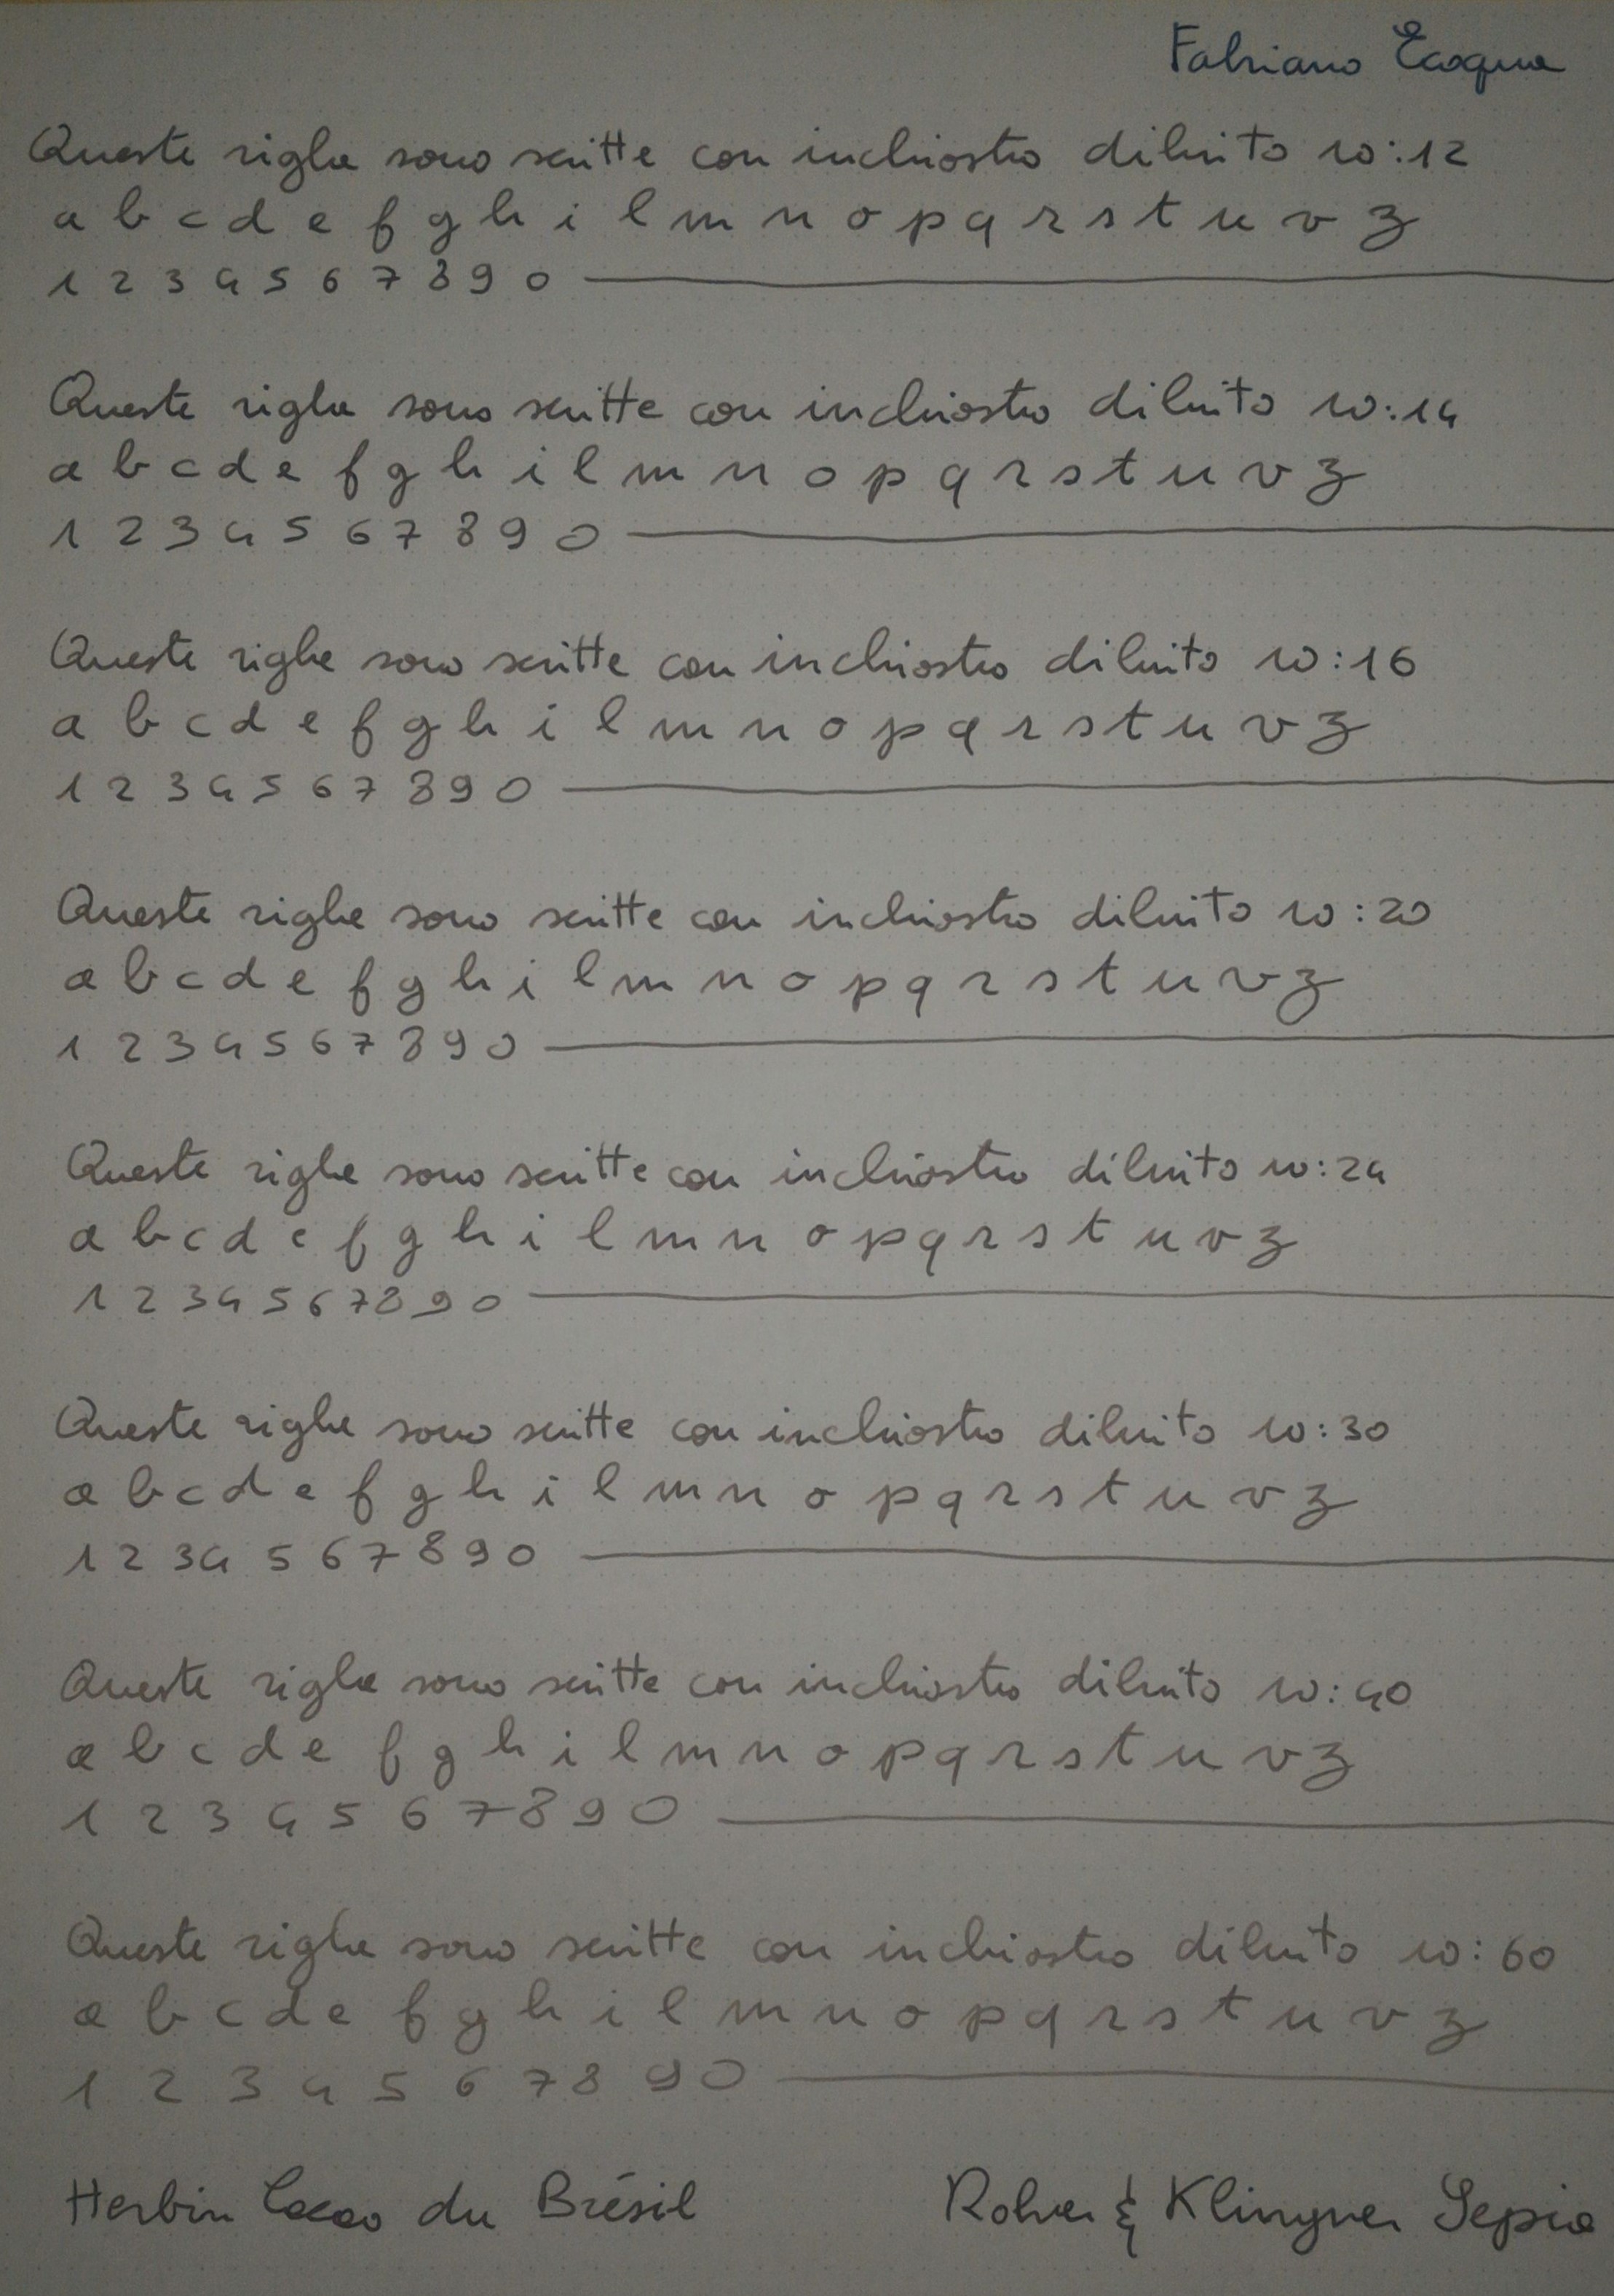 Fabriano Ecoqua
Queste righe sono scritte con inchiostro diluito 10:12
a b c d e f g h i l m n o p q r s t u v z
1 2 3 4 5 6 7 8 9 0
Queste righe sono scritte con inchiostro diluito 10:14
a b c d e f g h i l m n o p q r s t u v z
1 2 3 4 5 6 7 8 9 0
Queste righe sono scritte con inchiostro diluito 10:16
a b c d e f g h i l m n o p q r s t u v z
1 2 3 4 5 6 7 8 9 0
Queste righe sono scritte con inchiostro diluito 10:20
a b c d e f g h i l m n o p q r s t u v z
1 2 3 4 5 6 7 8 9 0
Queste righe sono scritte con inchiostro diluito 10:24
a b c d e f g h i l m n o p q r s t u v z
1 2 3 4 5 6 7 8 9 0
Queste righe sono scritte con inchiostro diluito 10:30
a b c d e f g h i l m n o p q r s t u v z
1 2 3 4 5 6 7 8 9 0
Queste righe sono scritte con inchiostro diluito 10:40
a b c d e f g h i l m n o p q r s t u v z
1 2 3 4 5 6 7 8 9 0
Queste righe sono scritte con inchiostro diluito 10:60
a b c d e f g h i l m n o p q r s t u v z
1 2 3 4 5 6 7 8 9 0
Herbin Cacao du Brésil Rohrer & Klingner Sepia